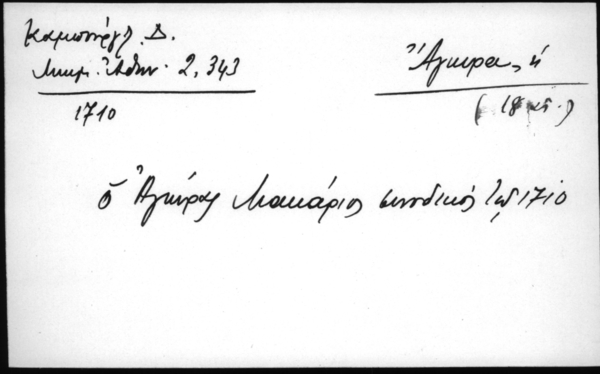 Καμπούρογλ. Δ.
Μνημ. Ἀθην. 2, 343
1710
Ἄγκυρα, ἡ
( 18 )
ὁ Ἀγκύρας Μακάριος συνοδικός 1710